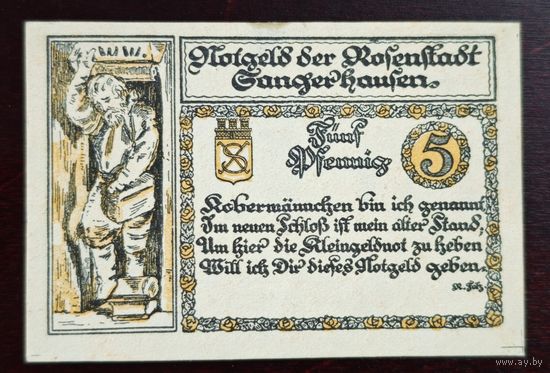 Notgeld der Rosenstadt
Sangerhausen.
Fünf
Pfennig
5
Kobermännchen bin ich genannt,
Im neuen Schloß ist mein alter Stand;
Um hier die Kleingeldnot zu heben
Will ich Dir dieses Notgeld geben.
www.ay.by